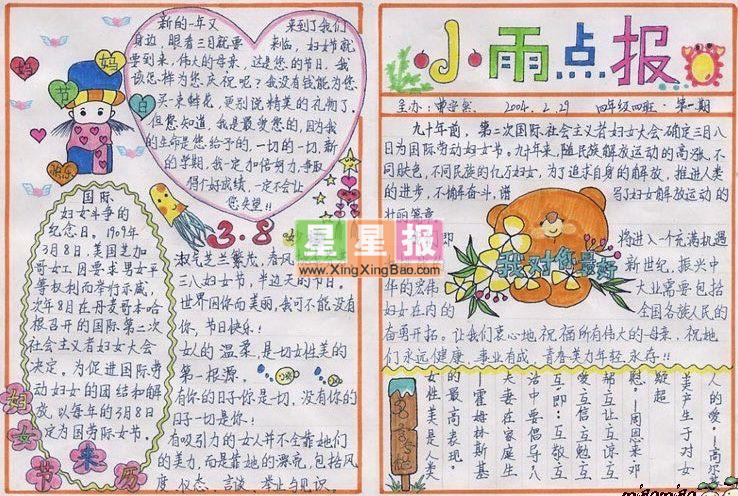 妈
妈
节
日
快乐
新的一年又
来到了我们
身边，眼看三月就要
来临，妇女节就
要到来，伟大的母亲，这是您的节日，我
该怎样为您庆祝呢？我没有钱能为您
买一束鲜花，更别说精美的礼物了。
但您知道，我是最爱您的，因为我
的生命是您给予的，一切的一切，新
的学期，我一定加倍努力，争取
得个好成绩，一定不会让
您失望！！
国际
妇女斗争的
纪念日，1909年
3月8日，美国芝加
哥女工因要求男女平
等权利而举行示威，
次年8日在丹麦哥本哈
根召开的国际第二次
社会主义者妇女大会
决定，为促进国际劳
动妇女的团结和解
放，以每年的3月8日
定为国劳际女节。
妇女节来历
3.8
淑气芝兰繁茂，春风
三八妇女节，半边天的节日。
世界因你而美丽，我可不能没有
你，节日快乐！
女人的温柔，是一切女性美的
第一根源。
有你的日子你是一切，没有你的
日子一切是你！
有吸引力的女人并不会靠她们
的美力，而是靠她的漂亮，包括风
度、仪态、言谈、举止与见识。
星星报
www.XingXingBao.com
小雨点报
主办：
2004.2.29
四年级四班·第一期
九十年前，第二次国际社会主义者妇女大会确定三月八
日为国际劳动妇女节。九十年来，随民族解放运动的高涨，不
同肤色，不同民族的亿万妇女，为了追求自身的解放，推进人类
的进步，不懈奋斗，谱
写了妇女解放运动的
壮丽篇章
即
将进入一个充满机遇
新世纪，振兴中
华的宏伟
大业需要包括
妇女在内的
全国各族人民的
奋勇开拓。让我们衷心地祝福所有伟大的母亲，祝她
们永远健康，事业有成，青春美力年轻永存！！
我对你最好
人的爱。——高尔
美产生于对女
慰。——周恩来、邓
颖超
爱互信互勉互
帮互让互谅互
互即：互敬互
活中要倡导八
夫妻在家庭生
——霍姆林斯基
的最高表现。
女性美是人类